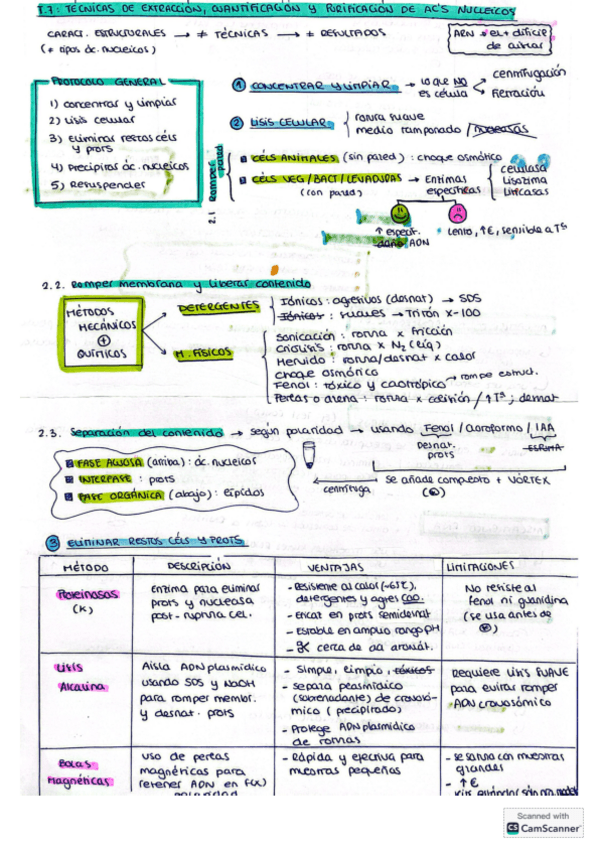 T.7: TÉCNICAS DE EXTRACCIÓN, CUANTIFICACIÓN Y PURIFICACIÓN DE AC'S NUCLEICOS
CARACT. ESTRUCTURALES → ≠ TÉCNICAS → ≠ RESULTADOS
(≠ tipos ác. nucleicos)
ARN → el + difícil de aislar
PROTOCOLO GENERAL
1) concentrar y limpiar
2) lisis celular
3) eliminar restos céls y prots
4) Precipitar ác. nucleicos
5) Resuspender
① CONCENTRAR Y LIMPIAR → lo que NO es célula
centrifugación
filtración
② LISIS CELULAR
rotura suave
medio tamponado / nucleasas
2.1 Romper pared
CÉLS ANIMALES (sin pared) : choque osmótico
CÉLS VEG/BACT/LEVADURAS (con pared) → Enzimas específicas
celulasa
Lisozima
Liticasas
↑ especif.
daño ADN
Lento, ↑€, sensible a Tª
2.2. Romper membrana y liberar contenido
MÉTODOS MECÁNICOS + QUÍMICOS
DETERGENTES
Iónicos : agresivos (desnat) → SDS
Iónicos : suaves → Tritón X-100
M. FÍSICOS
Sonicación : rotura x fricción
Criolisis : rotura x N₂ (líq)
Hervido : rotura/desnat x calor
choque osmónico
Fenol : tóxico y caotrópico → rompe estruct.
Perlas o arena : rotura x colisión / ↑Tª ; desnat
2.3. Separación del contenido → según polaridad → usando Fenol / Cloroformo / IAA
Desnat. prots
ESPUMA
FASE ACUOSA (arriba) : ác. nucleicos
INTERFASE : prots
FASE ORGÁNICA (abajo) : lípidos
centrifuga
se añade compuesto + VÓRTEX
③ ELIMINAR RESTOS CÉLS Y PROTS
MÉTODO
DESCRIPCIÓN
VENTAJAS
LIMITACIONES
Proteinasas (K)
enzima para eliminar prots y nucleasa post-ruptura cel.
- Resistente al calor (~65ºC), detergentes y agtes CAO.
- Encat en prots semidesnat
- Estable en amplio rango pH
- ✂ cerca de aa aromát.
No resiste al fenol ni guanidina (se usa antes de
Lisis Alcalina
Aísla ADN plasmídico usando SDS y NaOH para romper membr. y desnat. prots
- Simple, limpio, tóxicos
- separa plasmídico (sobrenadante) de cromosómico (precipitado)
- Protege ADN plasmídico de roturas
Requiere lisis SUAVE para evitar romper ADN cromosómico
Bolas Magnéticas
uso de perlas magnéticas para retener ADN en f(x)
- Rápida y efectiva para muestras pequeñas
- se satura con muestras grandes
- ↑€
Scanned with
CS CamScanner